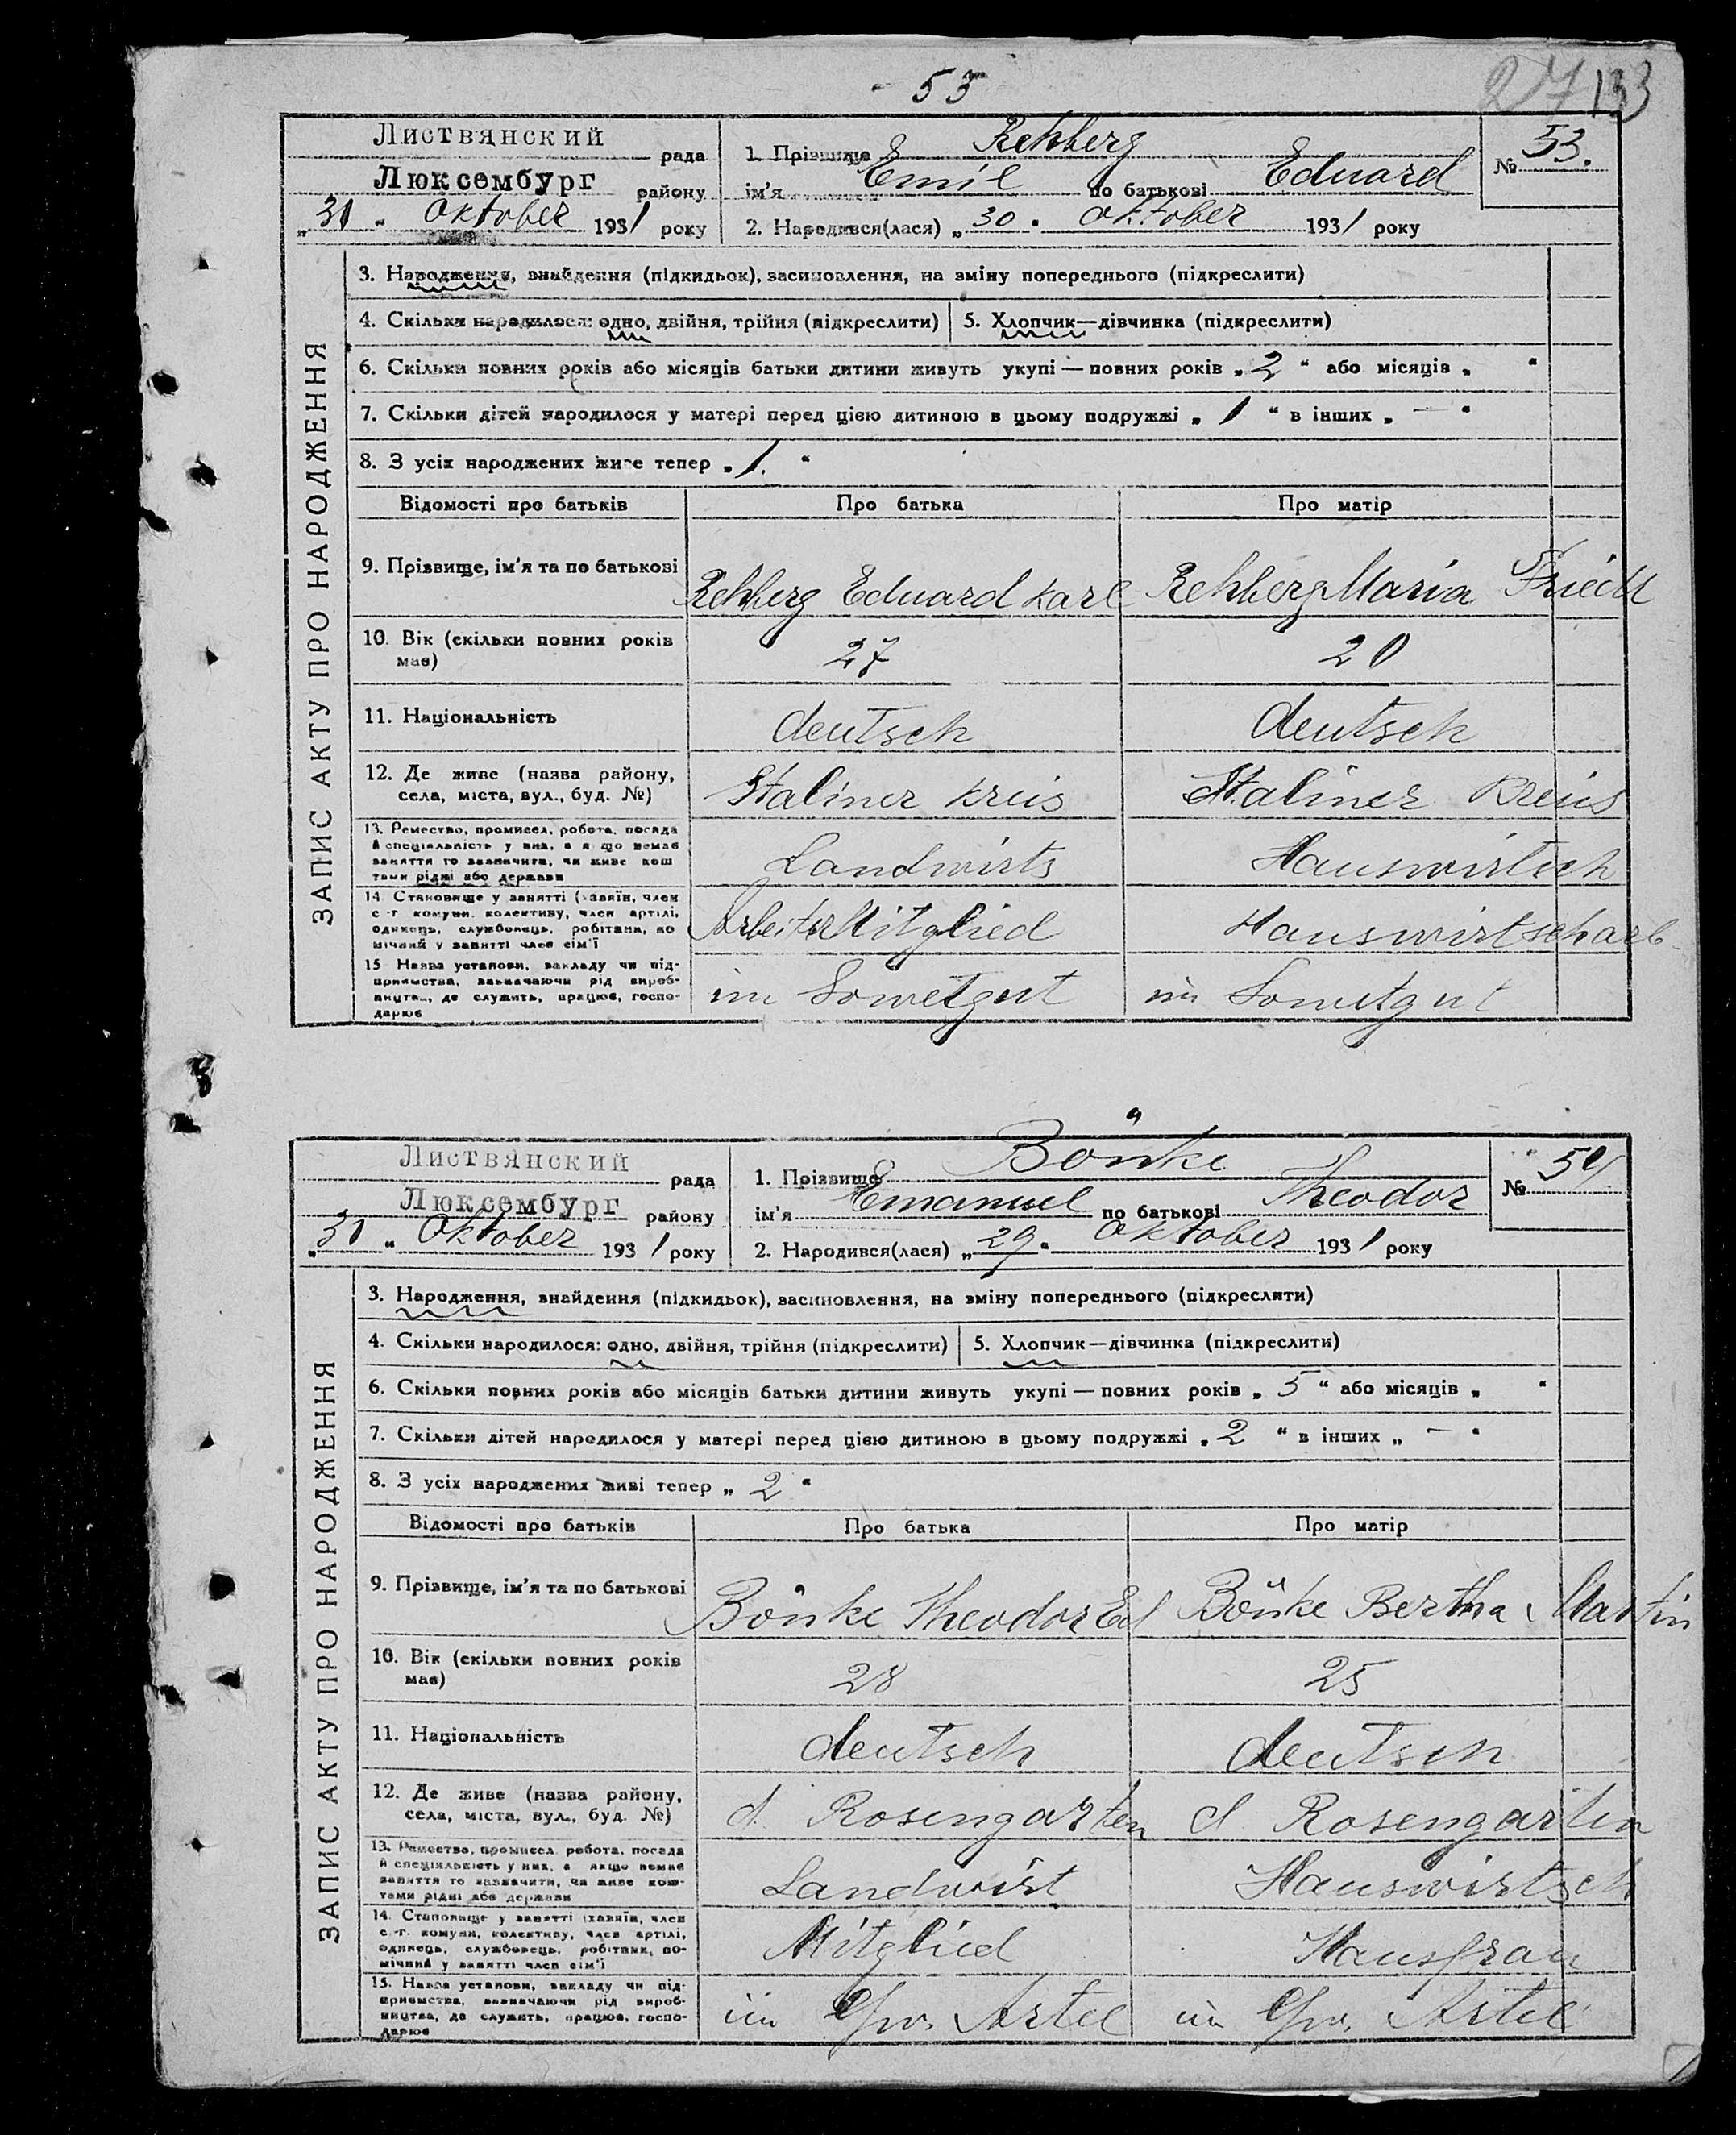 53
27 133
Листвянский рада
Люксембург району
„31“ Oktober 1931 року
1. Прізвище Rehberg
ім'я Emil по батькові Eduard
2. Народився(лася) „30“ Oktober 1931 року
№ 53.
ЗАПИС АКТУ ПРО НАРОДЖЕННЯ
3. Народження, знайдення (підкидьок), засиновлення, на зміну попереднього (підкреслити)
4. Скільки народилося: одно, двійня, трійня (підкреслити) 5. Хлопчик—дівчинка (підкреслити)
6. Скільки повних років або місяців батьки дитини живуть укупі — повних років „2“ або місяців „ “
7. Скільки дітей народилося у матері перед цією дитиною в цьому подружжі „1“ в інших „—“
8. З усіх народжених живе тепер „1.“
Відомості про батьків Про батька Про матір
9. Прізвище, ім'я та по батькові Rehberg Eduard Karl Rehberg Maria Friedr
10. Вік (скільки повних років має) 27 20
11. Національність deutsch deutsch
12. Де живе (назва району, села, міста, вул., буд. №) Staliner Kreis Staliner Kreis
13. Ремество, промисел, робота, посада й спеціяльність у них, а якщо немає заняття то зазначити, чи живе коштами рідні або держави Landwirts Hauswirtsch
14. Становище у занятті (хазяїн, член с.-г. комуни, колективу, член артілі, одинець, службовець, робітник, помічний у занятті член сім'ї Arbeiter Mitglied Hauswirtscharb
15. Назва установи, закладу чи підприємства, зазначаючи рід виробництва, де служить, працює, господарює im Sowetgut im Sowetgut
Листвянский рада
Люксембург району
„31“ Oktober 1931 року
1. Прізвище Bönke
ім'я Emanuel по батькові Theodor
2. Народився(лася) „29“ Oktober 1931 року
№ 54
ЗАПИС АКТУ ПРО НАРОДЖЕННЯ
3. Народження, знайдення (підкидьок), засиновлення, на зміну попереднього (підкреслити)
4. Скільки народилося: одно, двійня, трійня (підкреслити) 5. Хлопчик—дівчинка (підкреслити)
6. Скільки повних років або місяців батьки дитини живуть укупі — повних років „5“ або місяців „ “
7. Скільки дітей народилося у матері перед цією дитиною в цьому подружжі „2“ в інших „—“
8. З усіх народжених живі тепер „2“
Відомості про батьків Про батька Про матір
9. Прізвище, ім'я та по батькові Bönke Theodor Ed Bönke Bertha Martin
10. Вік (скільки повних років має) 28 25
11. Національність deutsch deutsch
12. Де живе (назва району, села, міста, вул., буд. №) d. Rosengarten d. Rosengarten
13. Ремество, промисел, робота, посада й спеціяльність у них, а якщо немає заняття то зазначити, чи живе коштами рідні або держави Landwirt Hauswirtsch
14. Становище у занятті (хазяїн, член с.-г. комуни, колективу, член артілі, одинець, службовець, робітник, помічний у занятті член сім'ї Mitglied Hausfrau
15. Назва установи, закладу чи підприємства, зазначаючи рід виробництва, де служить, працює, господарює im Artel im Artel